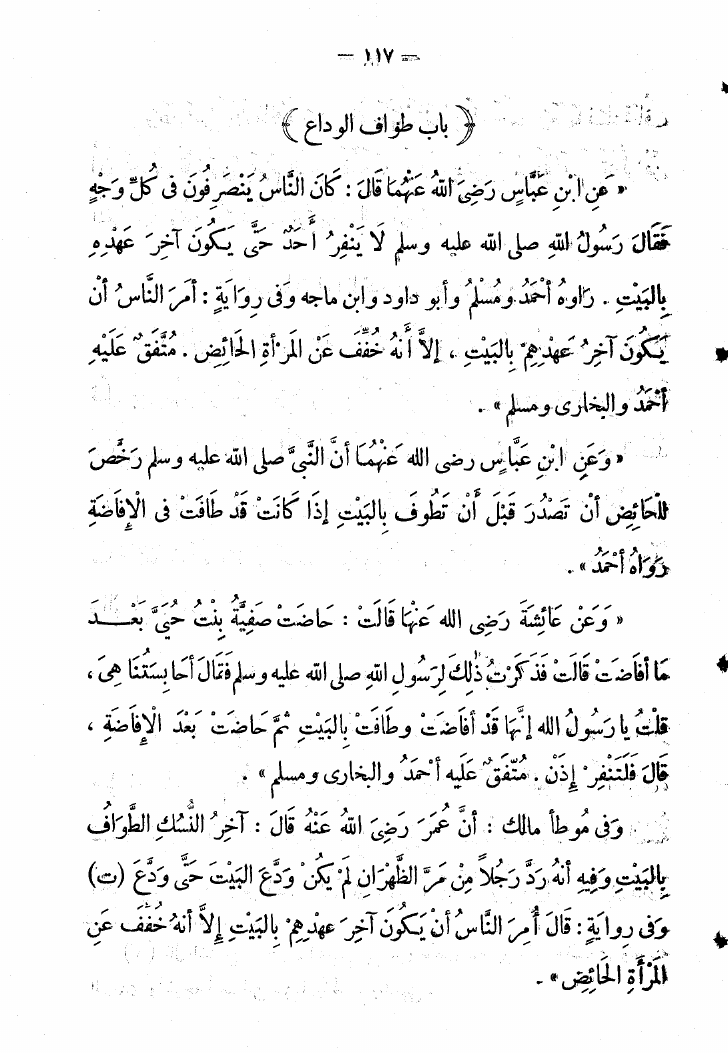 — ١١٧ —
﴿ باب طواف الوداع ﴾
« عَنِ ابْنِ عَبَّاسٍ رَضِىَ اللهُ عَنْهُمَا قَالَ : كَانَ النَّاسُ يَنْصَرِفُونَ فى كُلِّ وَجْهٍ
فَقَالَ رَسُولُ اللهِ صلى الله عليه وسلم لَا يَنْفِرُ أَحَدٌ حَتَّى يَكُونَ آخِرَ عَهْدِهِ
بِالبَيْتِ . رَاوهُ أحْمَدُ ومُسْلِمُ وأبو داود وابن ماجه وفى رِوَايَةٍ : أمَرَ النَّاسُ أنْ
يَكُونَ آخِرُ عَهْدِهِمْ بِالبَيْتِ ، إلاَّ أَنهُ خُفِّفَ عَنْ المَرْأةِ الحَائِض . مُتَّفَقٌ عَلَيْهِ
أحْمَدُ والبخارى ومسلم » .
« وَعَنِ ابْنِ عَبَّاسٍ رضى الله عَنْهُمَا أنَّ النَّبىَّ صلى الله عليه وسلم رَخَّصَ
لِلْحَائِضِ أنْ تَصْدُرَ قَبْلَ أَنْ تَطُوفَ بِالبَيْتِ إذَا كَانَتْ قَدْ طَافَتْ فى الْإِفَاضَةِ
رَوَاهُ أحْمَدُ » .
« وَعَنْ عَائِشَةَ رَضِىَ الله عَنْهَا قَالَتْ : حَاضَتْ صَفِيَّةُ بِنْتُ حُيَىٍّ بَعْـدَ
مَا أفَاضَتْ قَالَتْ فَذَكَرْتُ ذٰلِكَ لِرَسُولِ اللهِ صلى الله عليه وسلم فَقَالَ أحَابِسَتُنَا هِىَ ،
قلْتُ يا رَسُولُ الله إنَّهَا قَدْ أفَاضَتْ وطَافَتْ بِالبَيْتِ ثمَّ حَاضَتْ بَعْدَ الْإِفَاضَةِ ،
قَالَ فَلَتَنْفِرْ إِذَنْ . مُتَّفَقٌ عَلَيْه أحْمَدُ والبخارى ومسلم » .
وَفى مُوطأ مالك : أنَّ عُمَرَ رَضِىَ اللهُ عَنْهُ قَالَ : آخِرُ النُّسُكِ الطَّوَافُ
بِالبَيْتِ وَفِيهِ أنهُ رَدَّ رَجُلاً مِنْ مَرِّ الظَّهْرَانِ لَمْ يَكُنْ وَدَّعَ البَيْتَ حَتَّى وَدَّعَ (ت)
وَفى رِوايَةٍ : قَالَ أُمِرَ النَّاسُ أنْ يَكُونَ آخِرَ عهْدِهِمْ بِالبَيْتِ إلاَّ أنهُ خُفِّفَ عَنِ
المَرْأَةِ الحَائِضِ » .